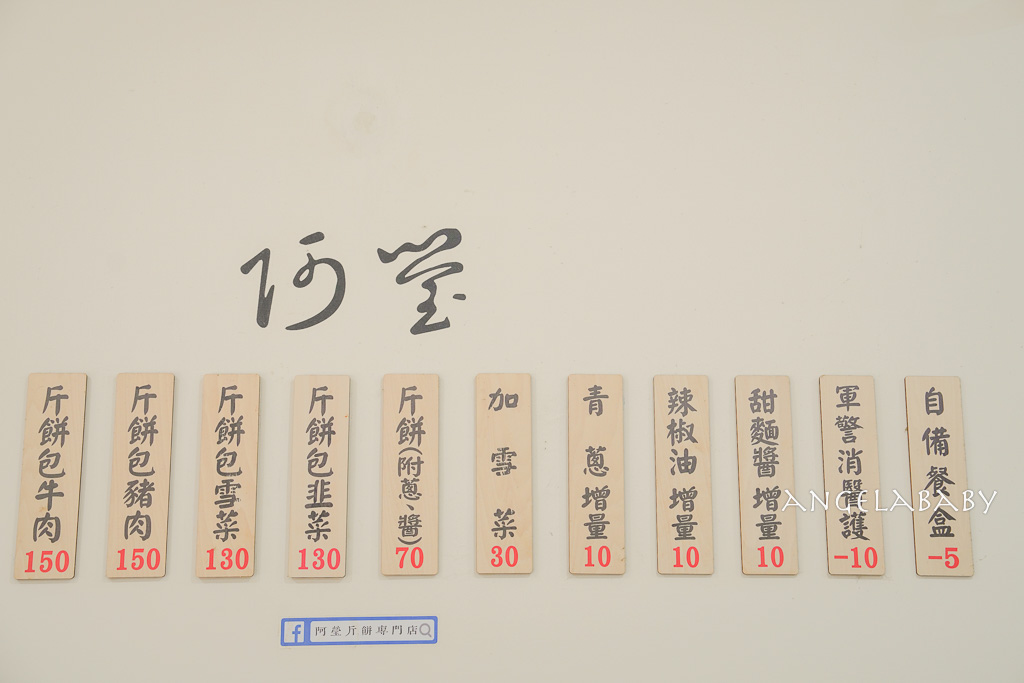 阿瑩
斤餅包牛肉 150
斤餅包豬肉 150
斤餅包雪菜 130
斤餅包韭菜 130
斤餅(附蔥、醬) 70
加雪菜 30
青蔥增量 10
辣椒油增量 10
甜麵醬增量 10
軍警消醫護 -10
自備餐盒 -5
ANGELABABY
f 阿瑩斤餅專門店